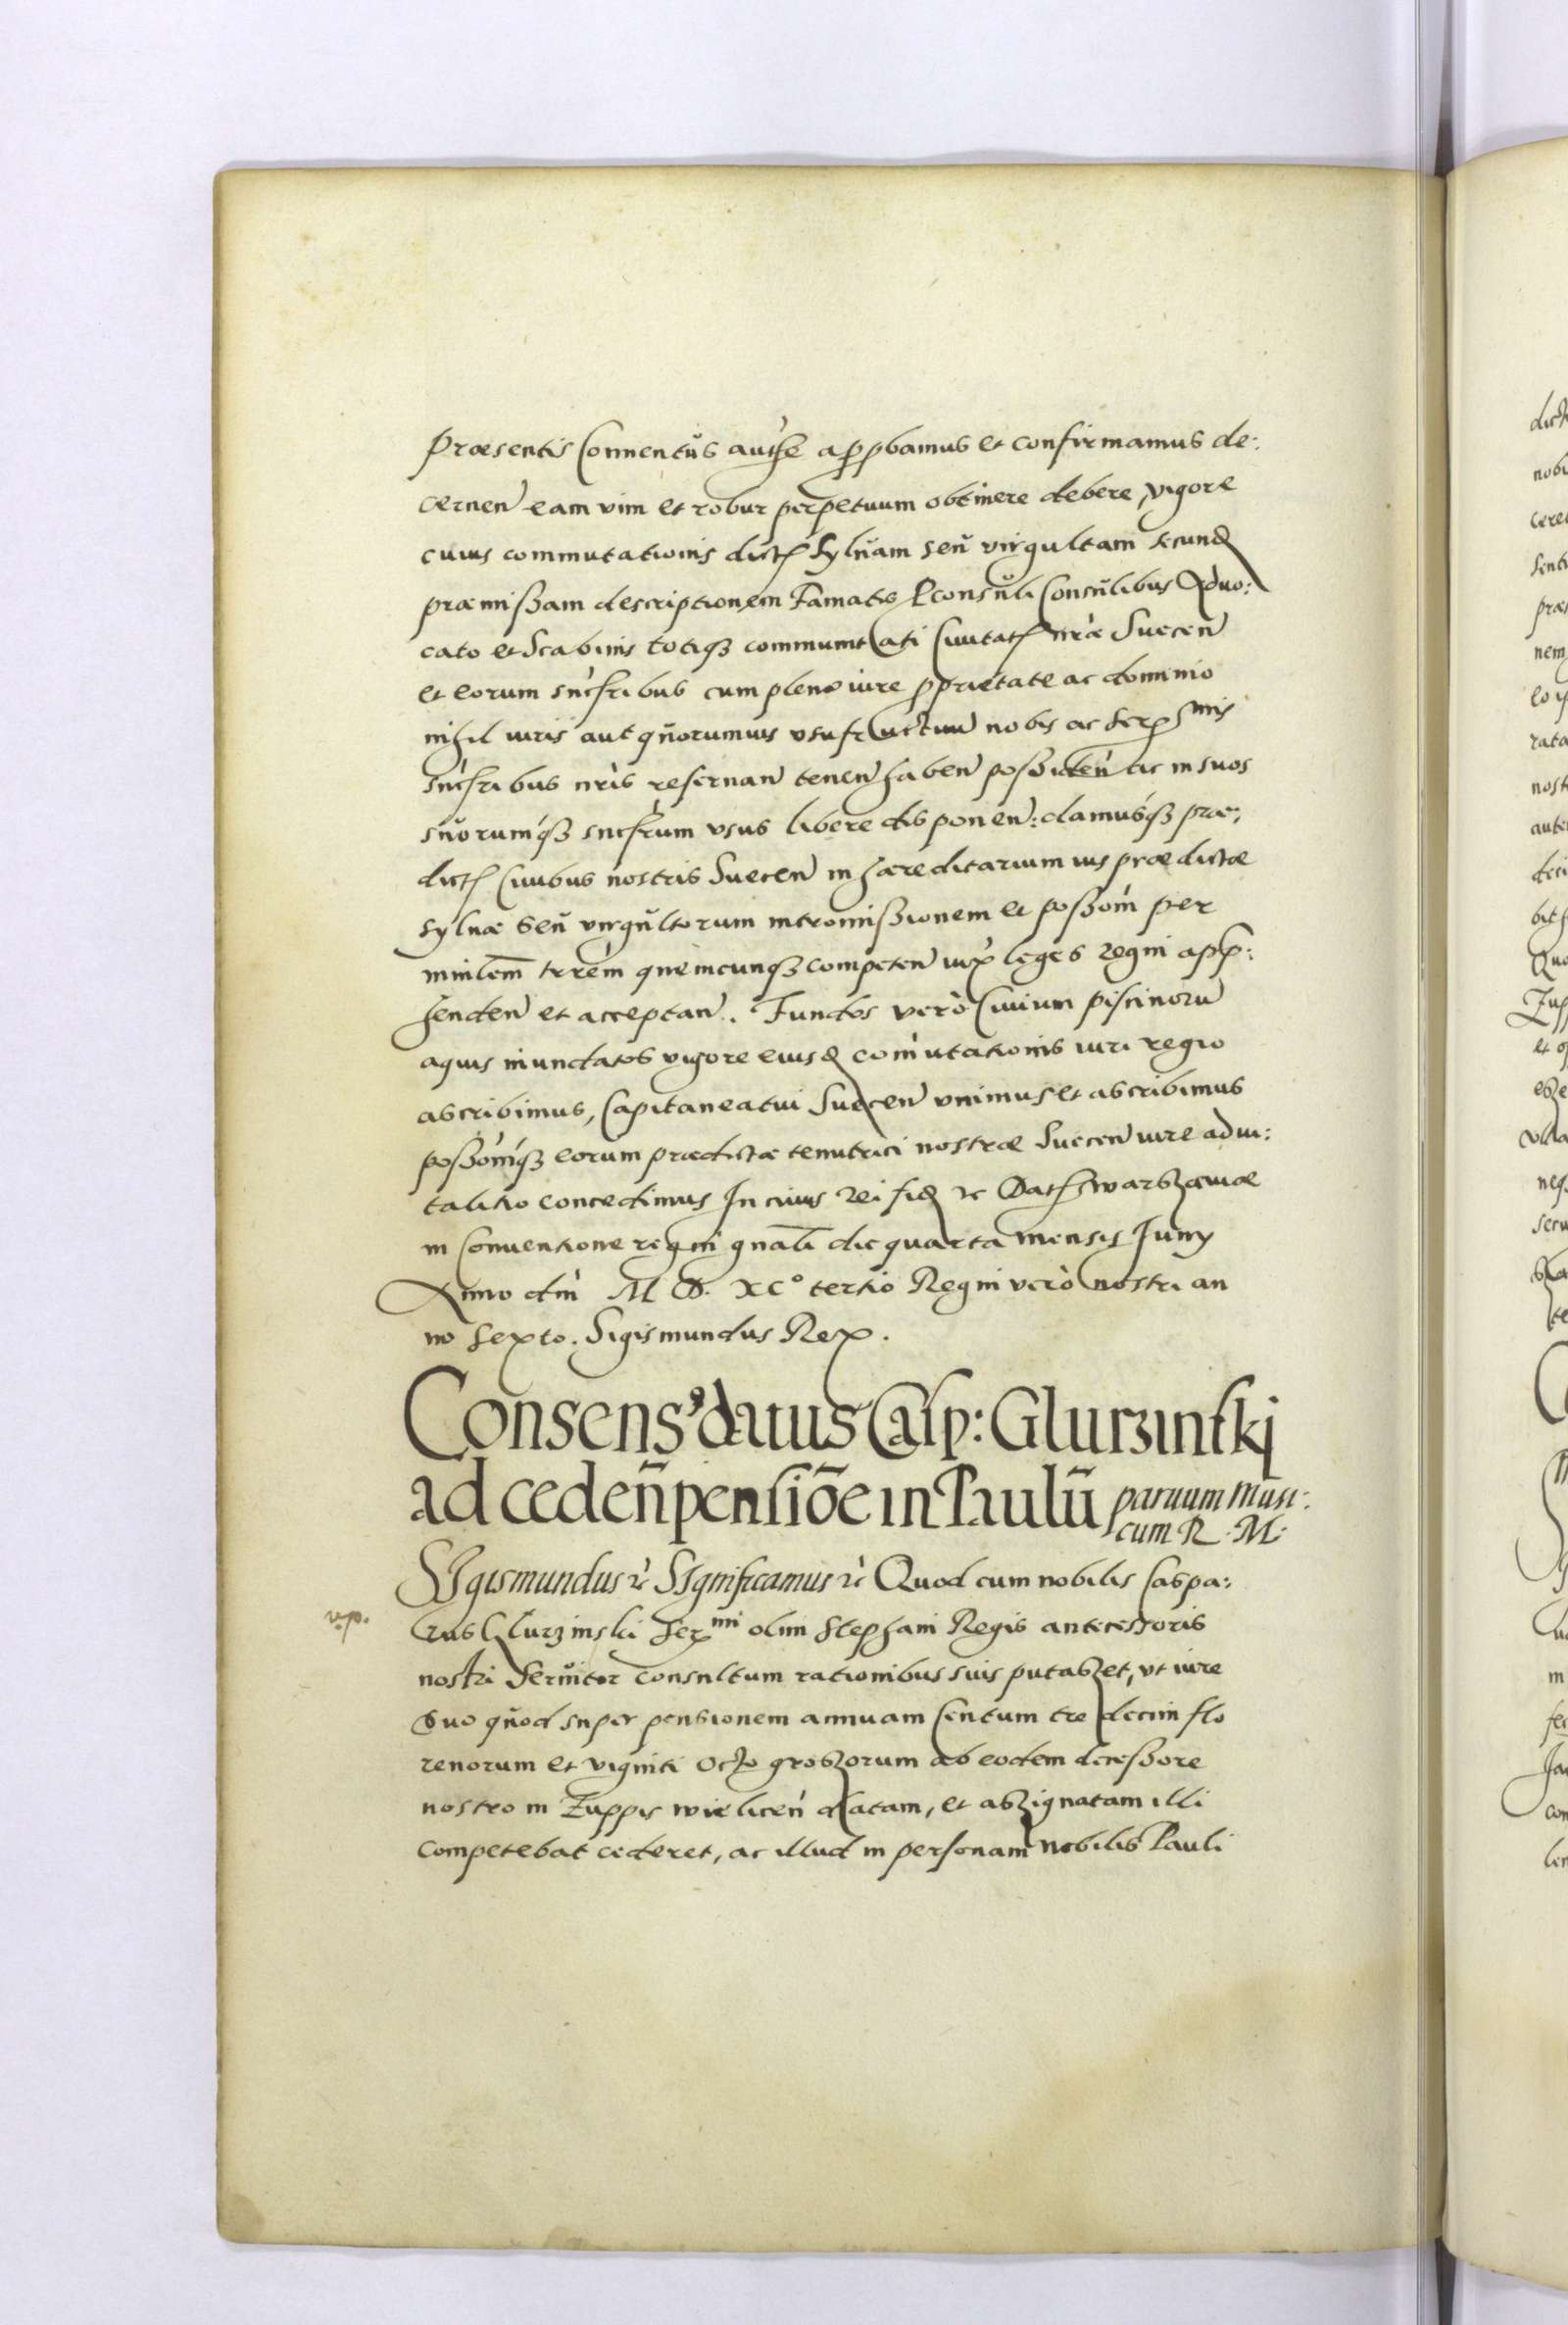 Præsentis Conuentus authe approbamus et confirmamus de:
cernen eam vim et robur perpetuum obtinere debere, vigore
cuius commutationis dict Syluam seu virgultam secund
præmissam descriptionem Famatis Pconsuli Consulibus Aduo:
cato et Scabinis totiq3 communitati Ciuitat nræ Suecen
et eorum sucsribus cum pleno iure proprietate ac dominio
nihil iuris aut quorumuis vsufructuum nobis ac Serx mis
sucsribus nris reseruan tenen haben possiden ac in suos
suorumq3 sucsrum vsus libere disponen: damusq3 præ:
dict Ciuibus nostris Suecen in hæreditarium ius prædictæ
syluæ seu virgultorum intromissionem et possom per
minlem trem quemcunq3 competen iux leges regni appr:
henden et acceptan. Fundos vero Ciuium piscinoru
aquis inundatos vigore eiusd comutationis iuri regio
ascribimus, Capitaneatui Suecen vnimus et ascribimus
possomq3 eorum prædictæ tenutrici nostræ Suecen iure adui:
talitio concedimus In cuius rei fid etc Dat Warszauiæ
in Conuentione regni gnali die quarta mensis Iuny
Anno dni M D. XC° tertio Regni vero nostri an
no sexto. Sigismundus Rex.
Consens9 datus Casp: Glurzinski
ad ceden pensiõe in Paulũ paruum Musi:
cum R. M:
Sigismundus etc Significamus etc Quod cum nobilis Caspa:
v.p. rus Glurzinski Serx mi olim Stephani Regis antecessoris
nostri Seruitor consultum rationibus suis putasset, vt iure
suo quod super pensionem annuam Centum tredecim flo
renorum et viginti Octo grossorum ab eodem decessore
nostro in Zuppis Wielicen datam, et assignatam illi
competebat cederet, ac illud in personam nobilis Pauli